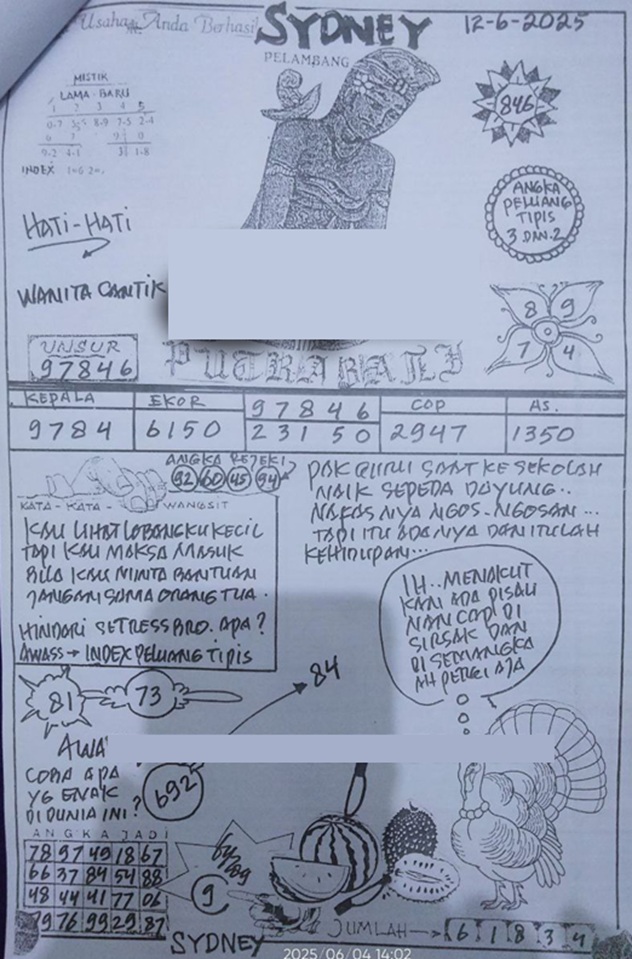 Usaha Anda Berhasil
SYDNEY
12-6-2025
PELAMBANG
MISTIK
LAMA - BARU
1 2 3 4 5
0-7 8-9 7-5 2-4
6 7 9 0
9-2 4-1 3 1-8
INDEX 1=6 2=
846
ANGKA
PELUANG
TIPIS
3 DAN 2
HATI-HATI
WANITA CANTIK
8 9
7 4
UNSUR
97846
PUTRA BALI
KEPALA EKOR 97846 COP AS.
9784 6150 23150 2947 1350
ANGKA REJEKI
92 60 45 94
KATA - KATA - WANGSIT
KAU LIHAT LOBANGKU KECIL
TAPI KAU MAKSA MASUK
BILA KAU MINTA BANTUAN
JANGAN SAMA ORANG TUA.
HINDARI SETRESS BRO. APA?
AWASS → INDEX PELUANG TIPIS
PAK GURU SAAT KE SEKOLAH
NAIK SEPEDA DAYUNG..
NAFASNYA NGOS-NGOSAN...
TAPI ITU ADANYA DAN ITULAH
KEHIDUPAN...
IH.. MENAKUT
KAN ADA PISAU
NANCAP DI
SIRSAK DAN
DI SEMANGKA
AH PERGI AJA
81
73
84
AWA
COBA APA
YG ENAK
DI DUNIA INI?
692
ANGKA JADI
78 97 49 18 67
66 37 84 54 88
48 44 41 77 06
79 76 99 29 87
64
09
9
JUMLAH → 6 1 8 3 4
SYDNEY
2025/06/04 14:02